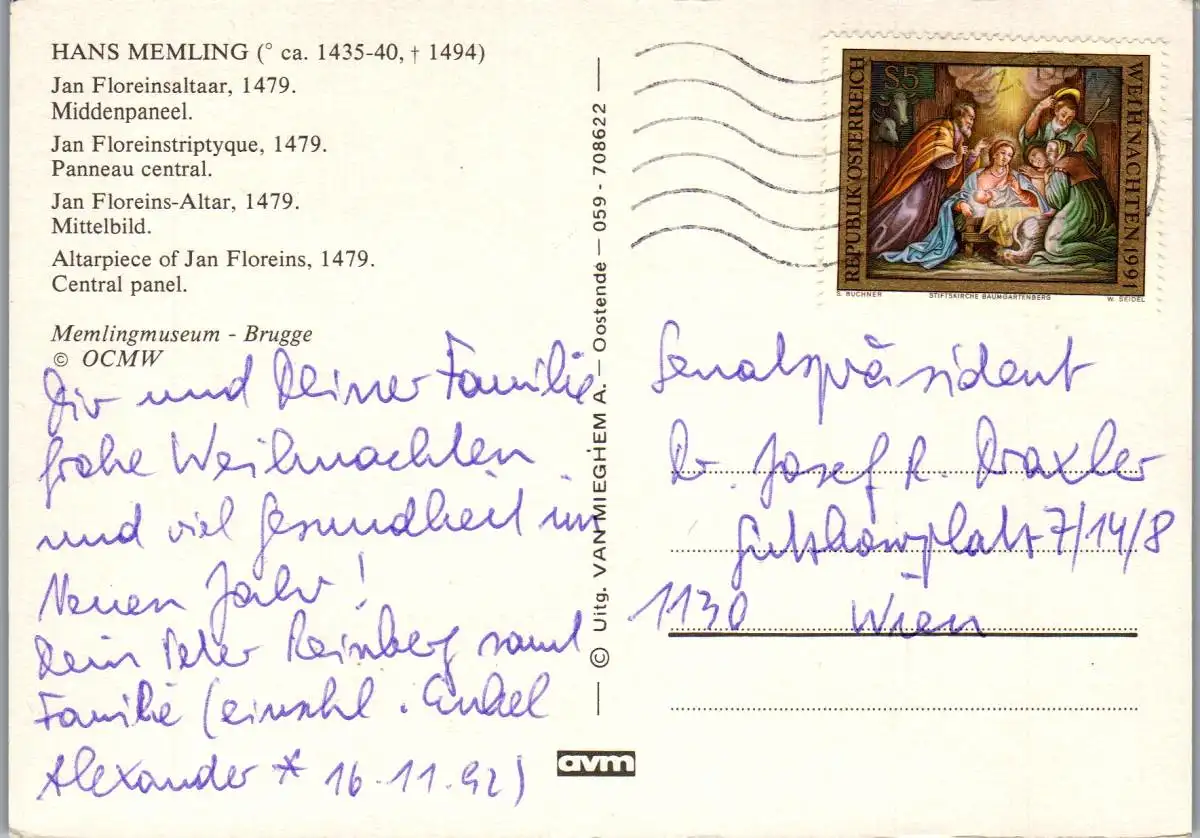 HANS MEMLING (° ca. 1435-40, † 1494)
Jan Floreinsaltaar, 1479.
Middenpaneel.
Jan Floreinstriptyque, 1479.
Panneau central.
Jan Floreins-Altar, 1479.
Mittelbild.
Altarpiece of Jan Floreins, 1479.
Central panel.
Memlingmuseum - Brugge
© OCMW
Dir und Deiner Familie
frohe Weihnachten
und viel Gesundheit im
Neuen Jahr!
Dein Peter Reinberg samt
Familie (einschl. Enkel
Alexander * 16.11.92)
© Uitg. VAN MIEGHEM A. — Oostende — 059 - 708622
avm
REPUBLIK ÖSTERREICH
S5
WEIHNACHTEN 1991
S. BUCHNER
STIFTSKIRCHE BAUMGARTENBERG
W. SEIDEL
Senatspräsident
Dr. Josef R. Draxler
Gutzkowplatz 7/14/8
1130 Wien